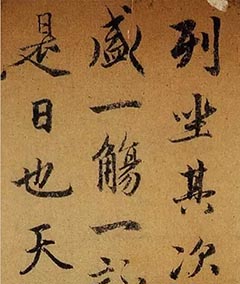 列坐其次
盛一觴一詠
是日也天